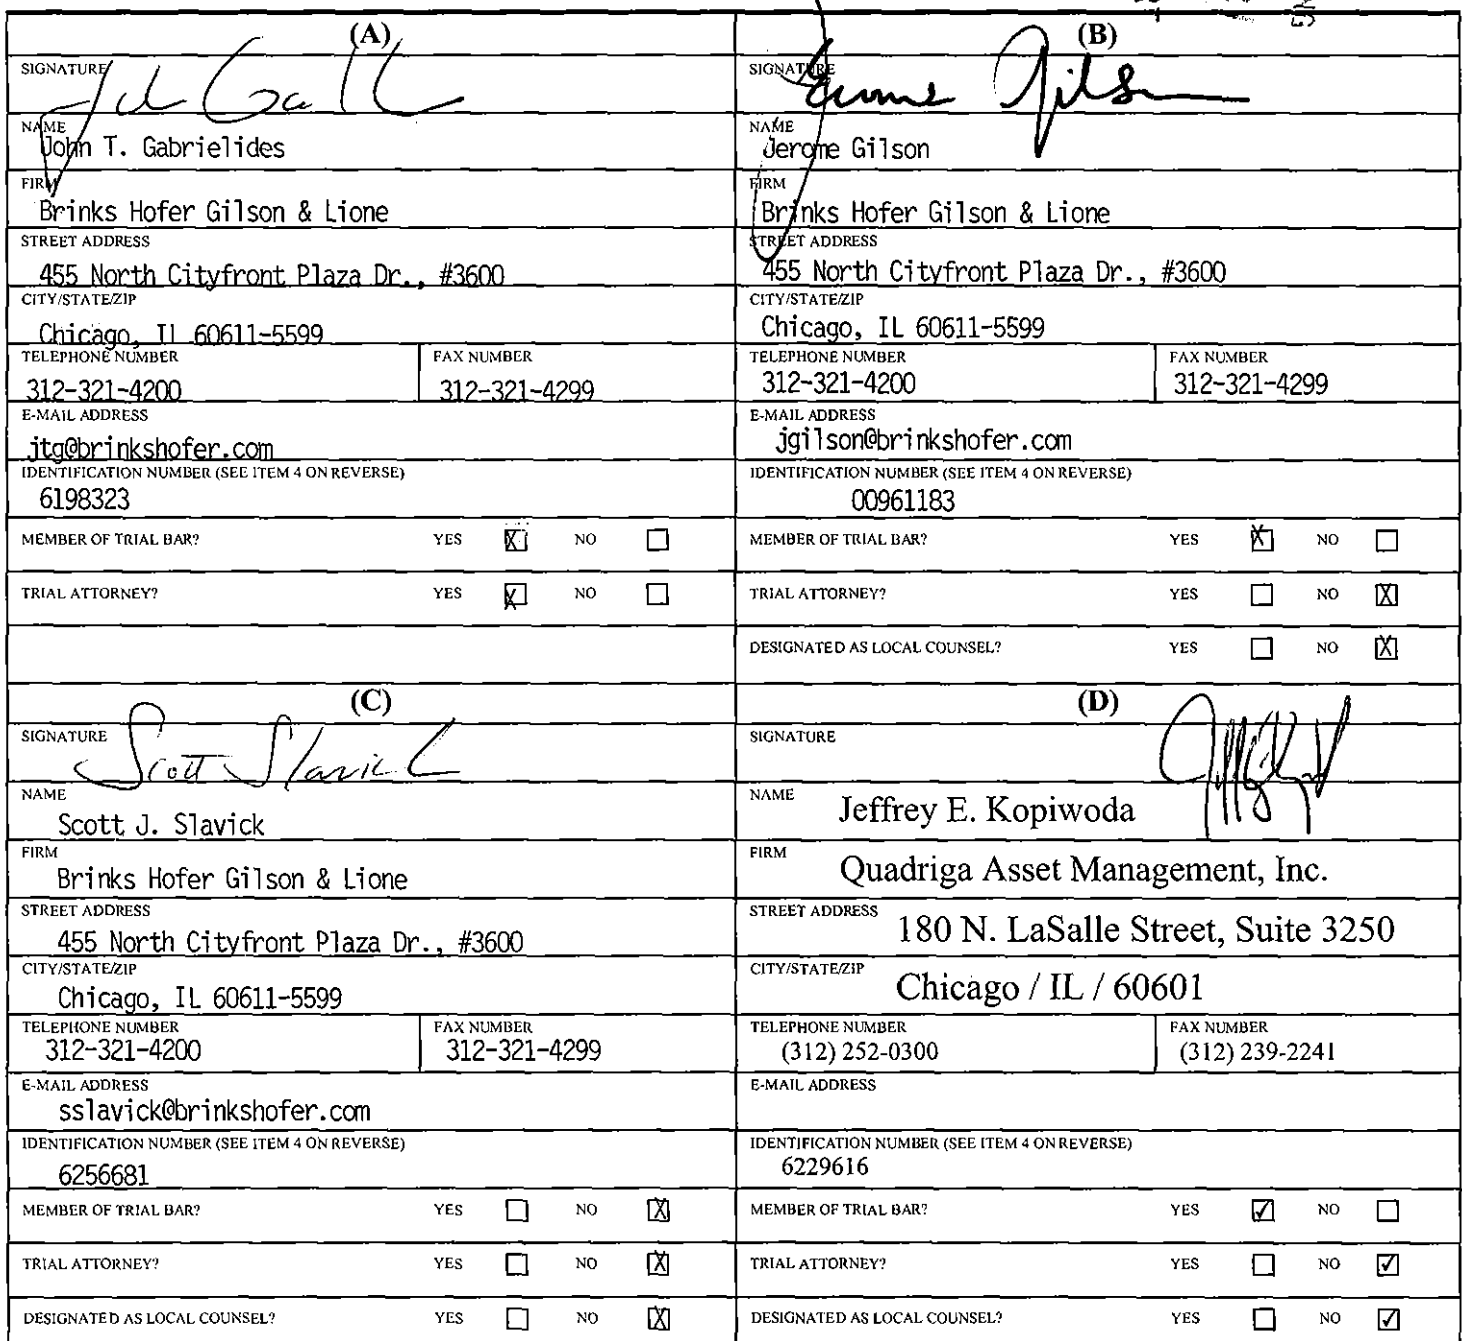 (A)
SIGNATURE
NAME
John T. Gabrielides
FIRM
Brinks Hofer Gilson & Lione
STREET ADDRESS
455 North Cityfront Plaza Dr., #3600
CITY/STATE/ZIP
Chicago, Il 60611-5599
TELEPHONE NUMBER FAX NUMBER
312-321-4200 312-321-4299
E-MAIL ADDRESS
jtg@brinkshofer.com
IDENTIFICATION NUMBER (SEE ITEM 4 ON REVERSE)
6198323
MEMBER OF TRIAL BAR? YES X NO
TRIAL ATTORNEY? YES X NO
(B)
SIGNATURE Jerome Gilson
NAME
Jerome Gilson
FIRM
Brinks Hofer Gilson & Lione
STREET ADDRESS
455 North Cityfront Plaza Dr., #3600
CITY/STATE/ZIP
Chicago, IL 60611-5599
TELEPHONE NUMBER FAX NUMBER
312-321-4200 312-321-4299
E-MAIL ADDRESS
jgilson@brinkshofer.com
IDENTIFICATION NUMBER (SEE ITEM 4 ON REVERSE)
00961183
MEMBER OF TRIAL BAR? YES X NO
TRIAL ATTORNEY? YES NO X
DESIGNATED AS LOCAL COUNSEL? YES NO X
(C)
SIGNATURE Scott Slavick
NAME
Scott J. Slavick
FIRM
Brinks Hofer Gilson & Lione
STREET ADDRESS
455 North Cityfront Plaza Dr., #3600
CITY/STATE/ZIP
Chicago, IL 60611-5599
TELEPHONE NUMBER FAX NUMBER
312-321-4200 312-321-4299
E-MAIL ADDRESS
sslavick@brinkshofer.com
IDENTIFICATION NUMBER (SEE ITEM 4 ON REVERSE)
6256681
MEMBER OF TRIAL BAR? YES NO X
TRIAL ATTORNEY? YES NO X
DESIGNATED AS LOCAL COUNSEL? YES NO X
(D)
SIGNATURE
NAME Jeffrey E. Kopiwoda
FIRM Quadriga Asset Management, Inc.
STREET ADDRESS 180 N. LaSalle Street, Suite 3250
CITY/STATE/ZIP Chicago / IL / 60601
TELEPHONE NUMBER FAX NUMBER
(312) 252-0300 (312) 239-2241
E-MAIL ADDRESS
IDENTIFICATION NUMBER (SEE ITEM 4 ON REVERSE)
6229616
MEMBER OF TRIAL BAR? YES ✓ NO
TRIAL ATTORNEY? YES NO ✓
DESIGNATED AS LOCAL COUNSEL? YES NO ✓